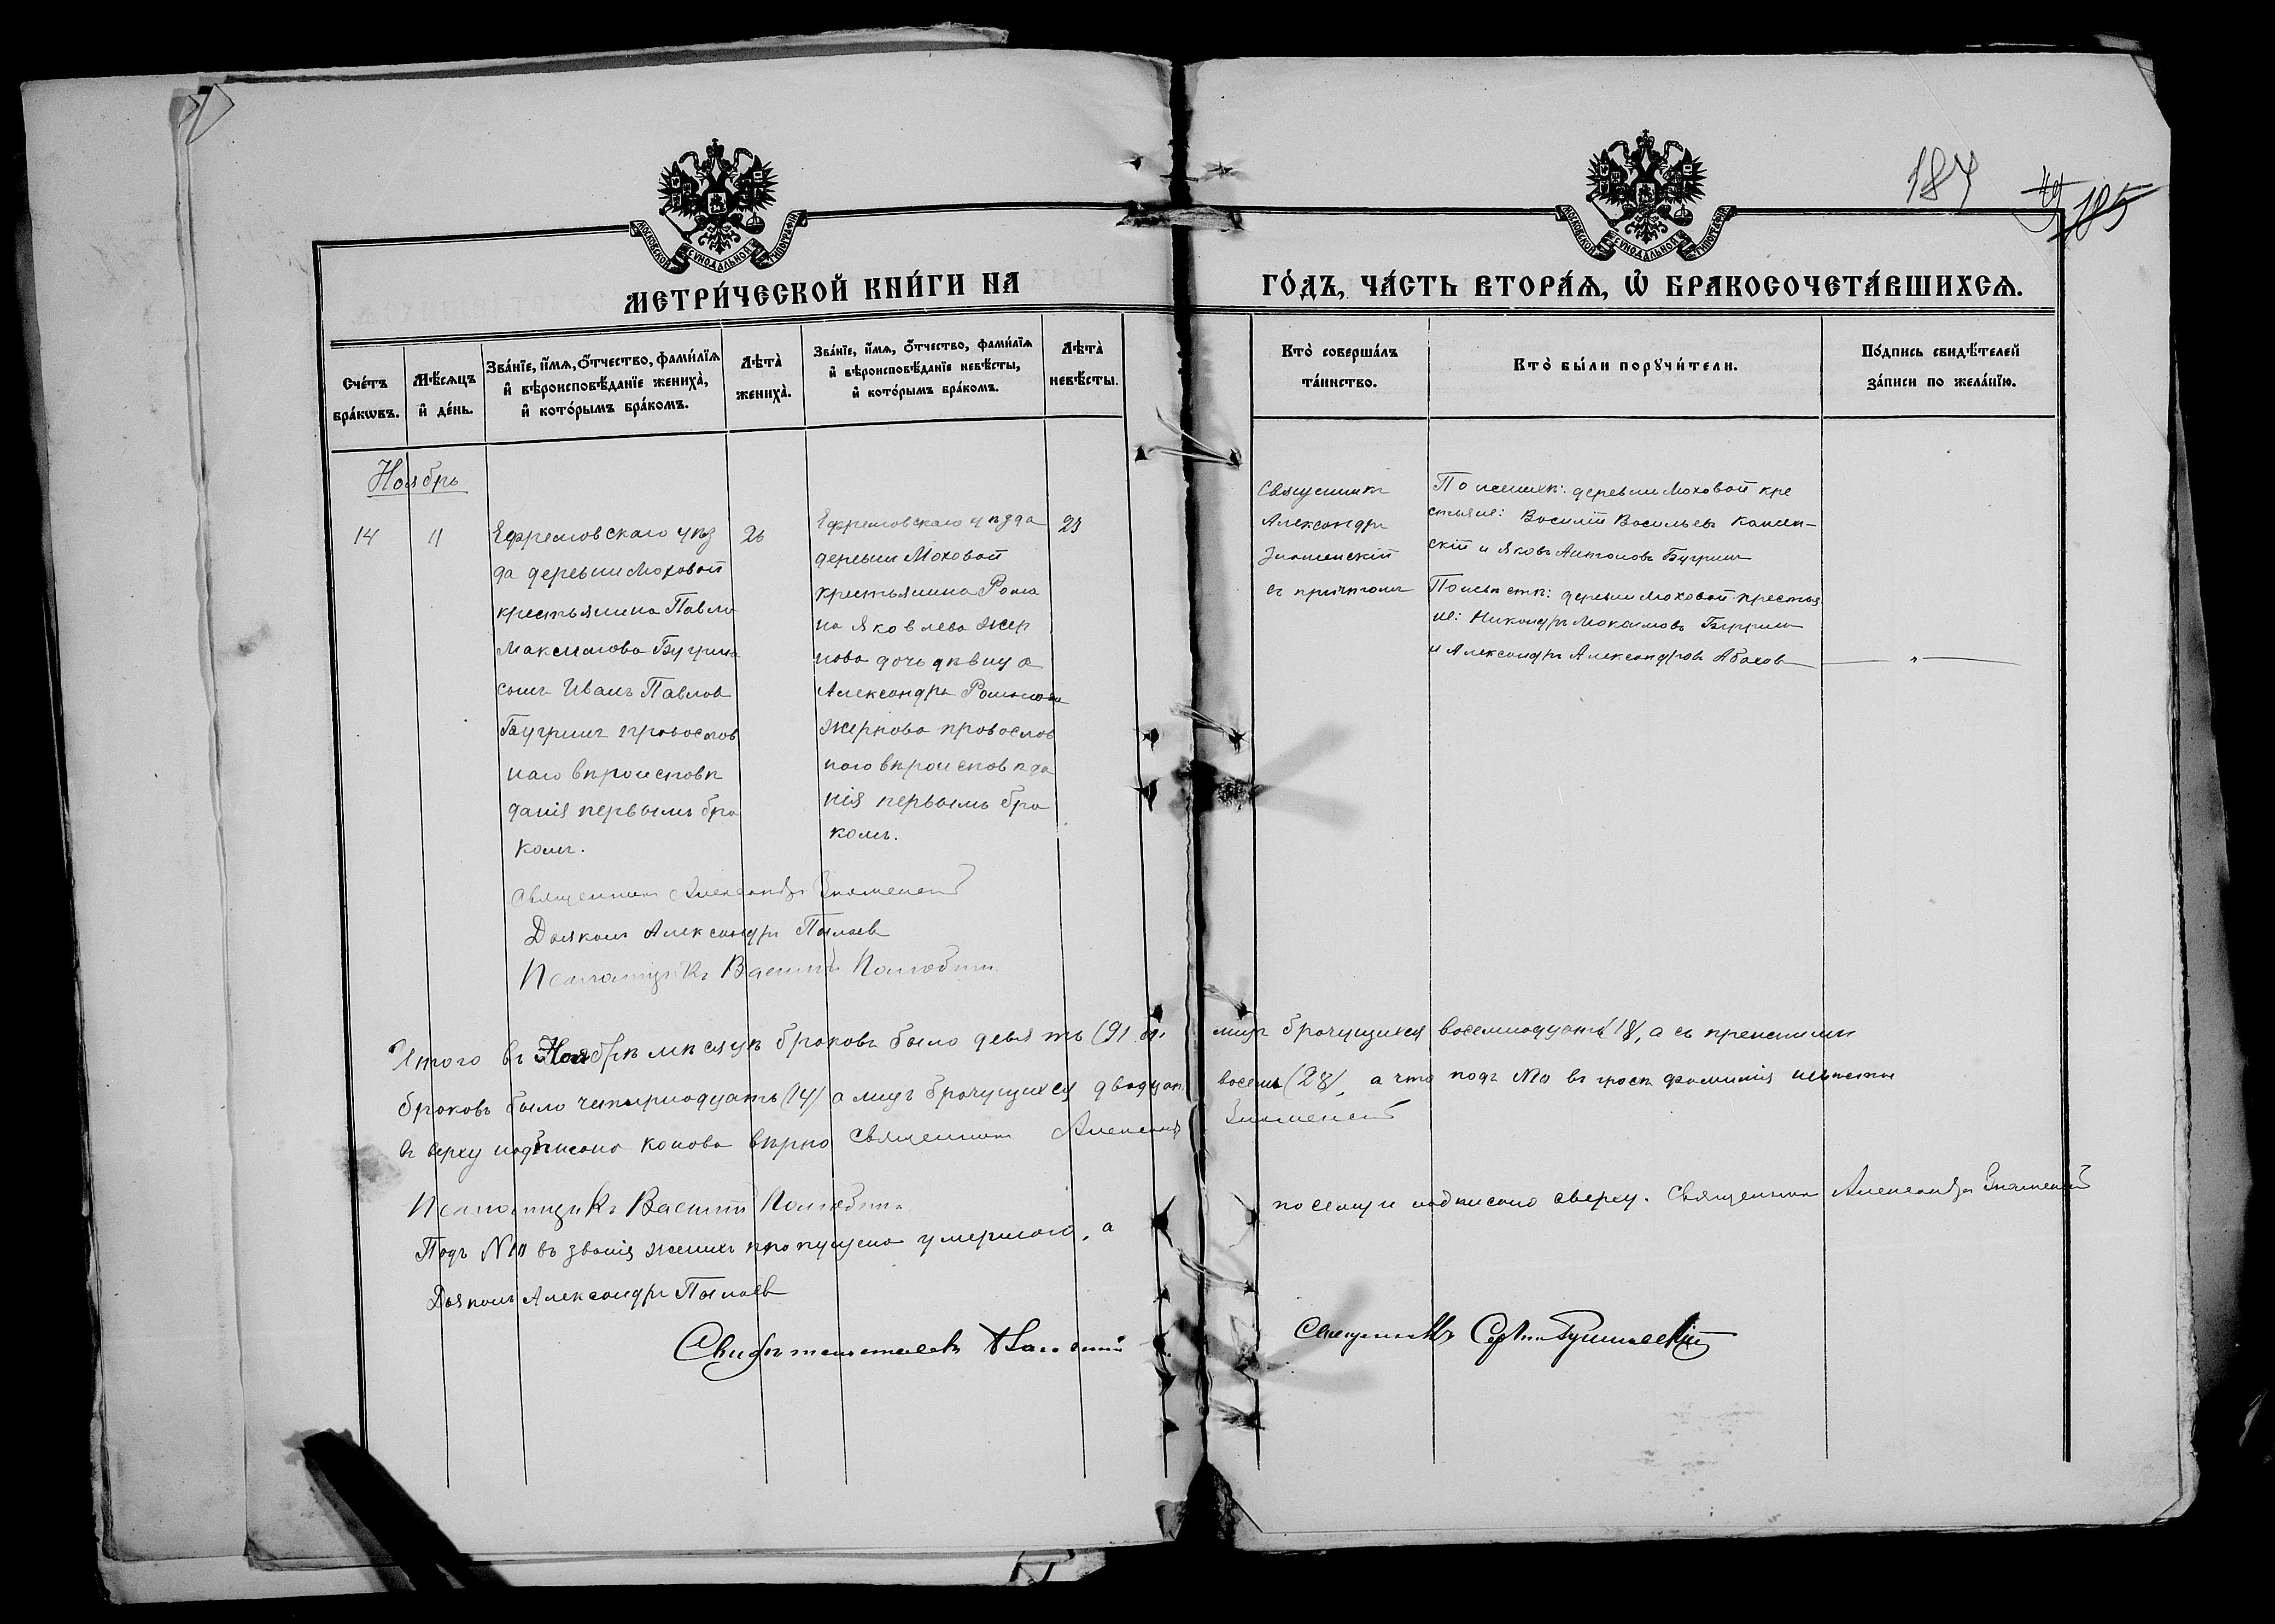 187
185
МОСКОВСКОЙ СѴНОДАЛЬНОЙ ТИПОГРАФІИ
МОСКОВСКОЙ СѴНОДАЛЬНОЙ ТИПОГРАФІИ
МЕТРИ́ЧЕСКОЙ КНИ́ГИ НА
ГО́ДЪ, ЧА́СТЬ ВТОРА́Ѧ, Ѽ БРАКОСОЧЕТА́ВШИХСѦ.
Сче́тъ бра́кѡвъ.
Мѣ́сѧцъ и҆ де́нь.
Зва́нїе, и҆́мѧ, ѻ҆́тчество, фами́лїѧ и҆ вѣроисповѣ́данїе жениха̀, и҆ кото́рымъ бра́комъ.
Лѣта̀ жениха̀.
Зва́нїе, и҆́мѧ, ѻ҆́тчество, фами́лїѧ и҆ вѣроисповѣ́данїе невѣ́сты, и҆ кото́рымъ бра́комъ.
Лѣта̀ невѣ́сты.
Кто̀ соверша́лъ та́инство.
Кто̀ бы́ли порꙋчи́тели.
По́дпись свидѣ́телей за́писи по жела́нїю.
Ноябрь
14
11
Ефремовскаго уѣз
да деревни Моховой
крестьянина Павла
Максимова Бугрина
сынъ Иванъ Павлов
Бугринъ православ
наго вѣроисповѣ
данія первымъ бра
комъ.
26
Ефремовскаго уѣзда
деревни Моховой
крестьянина Рома
на Яковлева Жер
нова дочь дѣвица
Александра Романова
Жернова православ
наго вѣроисповѣда
нія первымъ бра
комъ.
23
Священникъ
Александръ
Знаменскій
съ причтомъ
По женихѣ: деревни Моховой кре
стьяне: Василій Васильевъ Камен-
скій и Яковъ Антоновъ Бугринъ
По невѣстѣ: деревни Моховой крестья
не: Никандръ Максимовъ Бугринъ
и Александръ Александровъ Абахов
Священникъ Александръ Знаменскій
Дьяконъ Александръ Пылаев
Псаломщикъ Василій
Итого въ Ноябрѣ мѣсяцѣ браковъ было девять (9) а лицъ брачущихся восемнадцать (18), а съ прежними
браковъ было четырнадцать (14) а лицъ брачущихся двадцать восемь (28), а что подъ №10 въ графѣ фамилія невѣсты
въ верху подписано вѣрно Священникъ Александръ Знаменскій
Псаломщикъ Василій
Подъ №10 въ званія жениха пропущено умершаго, а по сему и подписано сверху. Священникъ Александръ Знаменскій
Дьяконъ Александръ Пылаев
Свидѣтельствовалъ
Священникъ